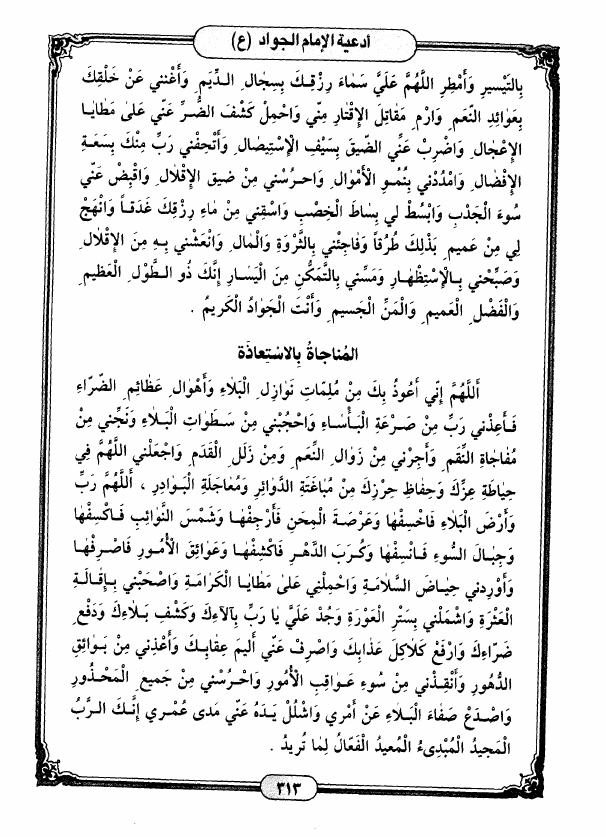 أدعية الإمام الجواد (ع)
بِالتَّيْسيرِ وَأَمْطِرِ اللَّهُمَّ عَلَيَّ سَمَاءَ رِزْقِـكَ بِسِجالِ الـدِّيَمِ وَأَغْنني عَنْ خَلْقِكَ
بِعَوائِدِ النِّعَمِ وَارْمِ مَقاتِلَ الإِقْتارِ مِنّي وَاحْمِلْ كَشْفَ الضُّرِّ عَنّي عَلى مَطايا
الإِعْجالِ وَاضْرِبْ عَنّي الضّيقَ بِسَيْفِ الْإِسْتيصالِ وَأَتْحِفْني رَبِّ مِنْكَ بِسَعَةِ
الإِفْضالِ وَامْدُدْني بِنُمُوِّ الأَمْوالِ وَاحرُسْني مِنْ ضيقِ الإِقْلالِ وَاقْبِضْ عَنّي
سُوءَ الجَدْبِ وَابْسُطْ لي بِساطَ الْخِصْبِ وَاسْقِني مِنْ ماءِ رِزْقِكَ غَدَقاً وَانْهَجْ
لي مِنْ عَميمِ بَذْلِكَ طُرُقاً وَفاجِئْني بِالثَّرْوَةِ وَالْمالِ وَانْعَشْني بِـهِ مِنَ الإِقْلالِ
وَصَبِّحْني بِـالْإِسْتِظْهارِ وَمَسِّني بِالتَّمَكُّنِ مِنَ الْيَسارِ إِنَّكَ ذُو الـطَّوْلِ الْعَظيمِ
وَالْفَضْلِ الْعَميمِ وَالْمَنِّ الْجَسيمِ وَأَنْتَ الْجَوادُ الْكَريمُ .
المُناجاةُ بِالاسْتِعاذَة
أَللَّهُمَّ إِنّي أَعُوذُ بِكَ مِنْ مُلِمّاتِ نَوازِلِ الْبَلاءِ وَأَهْوالِ عَظائِمِ الضَّرّاءِ
فَـأَعِذْني رَبِّ مِنْ صَرْعَةِ الْبَأْساءِ وَاحْجُبْني مِنْ سَطَواتِ الْبَلاءِ وَنَجِّني مِنْ
مُفاجَاةِ النِّقَمِ وَأَجِرْني مِنْ زَوالِ النِّعَمِ وَمِنْ زَلَلِ الْقَدَمِ وَاجْعَلْني اللَّهُمَّ فِي
حِياطَةِ عِزِّكَ وَحِفاظِ حِرْزِكَ مِنْ مُباغَتَةِ الدَّوائِرِ وَمُعاجَلَةِ الْبَوادِرِ ، أَللَّهُمَّ رَبِّ
وَأَرْضَ الْبَلاءِ فَاخْسِفْها وَعَرْصَةَ الْمِحَنِ فَأَرْجِفْها وَشَمْسَ النَّوائِبِ فَـاكْسِفْها
وَجِبالَ السُّوءِ فَـانْسِفْها وَكُرَبَ الدَّهْرِ فَاكْشِفْها وَعَوائِقَ الْأُمُورِ فَاصْرِفْها
وَأَوْرِدْني حِياضَ السَّلامَةِ وَاحْمِلْني عَلى مَطايا الْكَرامَةِ وَاصْحَبْني بِـإِقالَةِ
الْعَثْرَةِ وَاشْمَلْني بِسَتْرِ الْعَوْرَةِ وَجُدْ عَلَيَّ يا رَبِّ بِآلاءِكَ وَكَشْفِ بَلاءِكَ وَدَفْعِ
ضَرّاءِكَ وَارْفَعْ كَلاكِلَ عَذابِكَ وَاصْرِفْ عَنّي أَليمَ عِقابِكَ وَأَعْذِني مِنْ بَوائِقِ
الدُّهُورِ وَأَنْقِذْني مِنْ سُوءِ عَواقِبِ الْأُمُورِ وَاحْرُسْني مِنْ جَميعِ الْمَحْذُورِ
وَاصْدَعْ صَفاةَ الْبَلاءِ عَنْ أَمْري وَاشْلُلْ يَدَهُ عَنّي مَدى عُمْري إِنَّـكَ الـرَّبُ
الْمَجيدُ الْمُبْدِىءُ الْمُعيدُ الْفَعّالُ لِما تُريدُ .
٣١٣